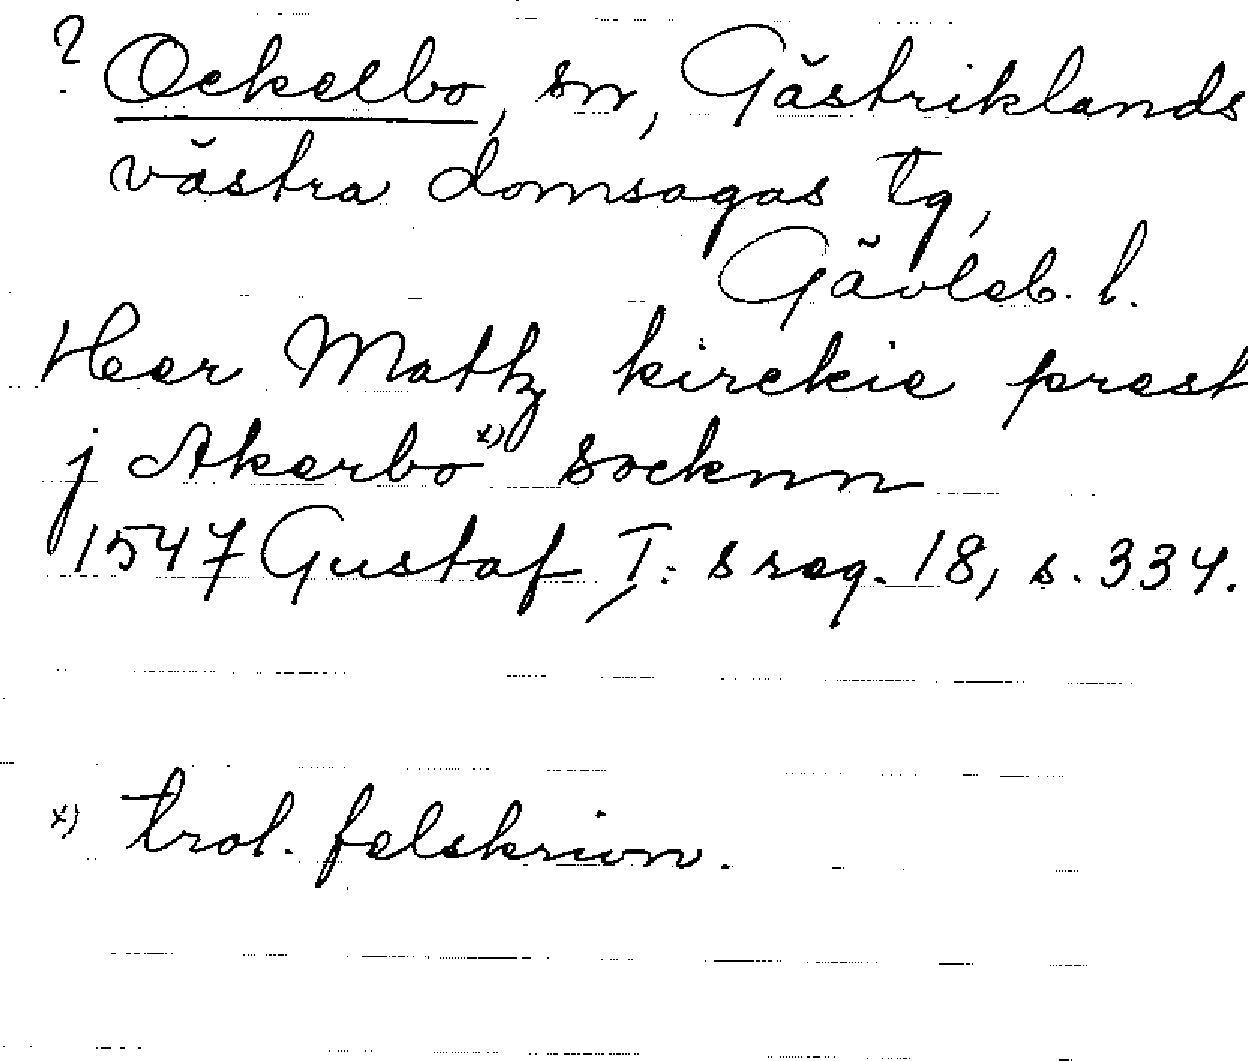 ? Ockelbo, sn, Gästriklands
västra domsagas tg,
Gävleb. l.
Heer Mattz kirckie prest
j Akerbo x) socknn
1547 Gustaf I:s reg. 18, s. 334.
x) trol. felskrivn.